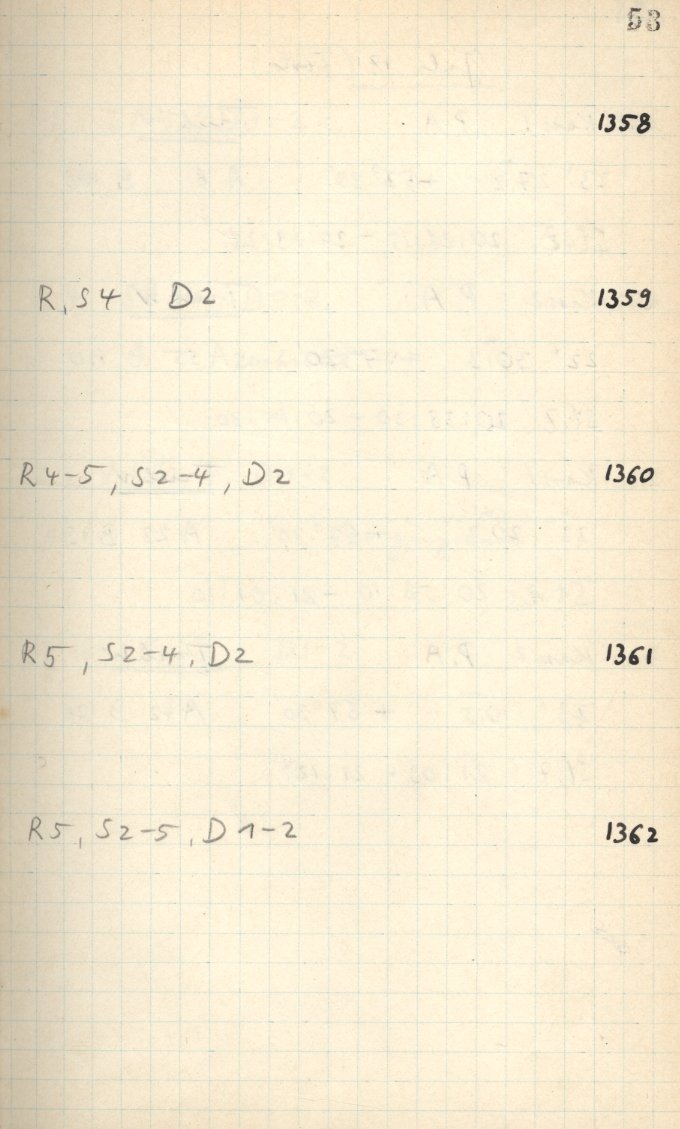 53
1358
R, S4 D2 1359
R4-5, S2-4, D2 1360
R5, S2-4, D2 1361
R5, S2-5, D1-2 1362